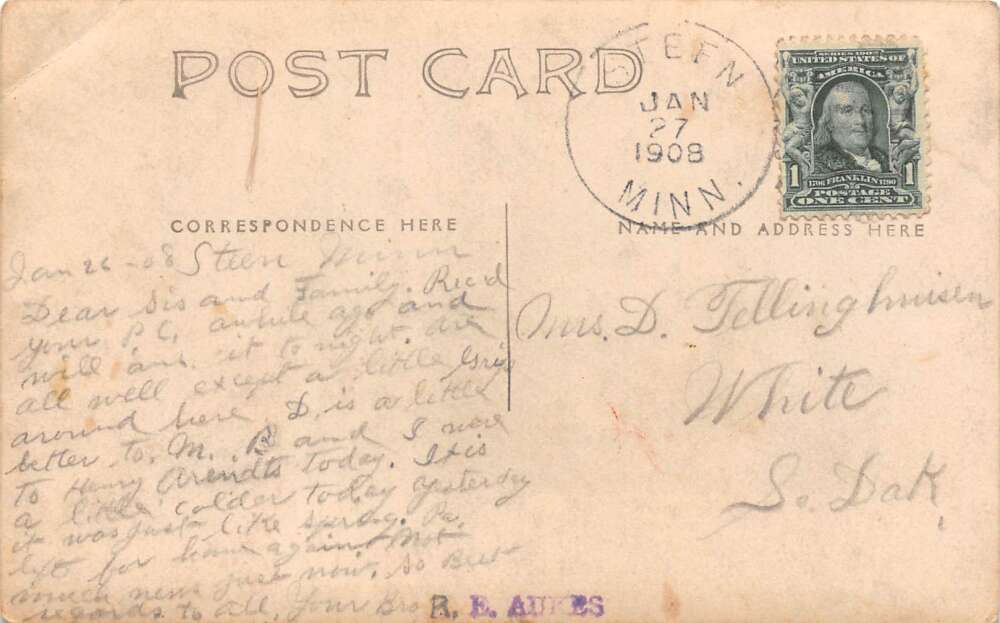 POST CARD
STEEN
JAN
27
1908
MINN.
SERIES 1902
UNITED STATES OF
AMERICA
1 1706 FRANKLIN 1790 1
POSTAGE
ONE CENT
CORRESPONDENCE HERE
NAME AND ADDRESS HERE
Jan 26 - 08 Steen Minn
Dear Sis and Family. Rec'd
your P.C. awhile ago and
will ans. it to night. Are
all well except a little Grip
around here. D. is a little
better to. M. R and I were
to Henry Arendts today. It is
a little colder today yesterday
it was just like spring. Pa.
left for home again Not
much news just now. So Best
regards to all, Your Bro R. E. AUKES
Mrs. D. Fellinghuisen
White
So. Dak.